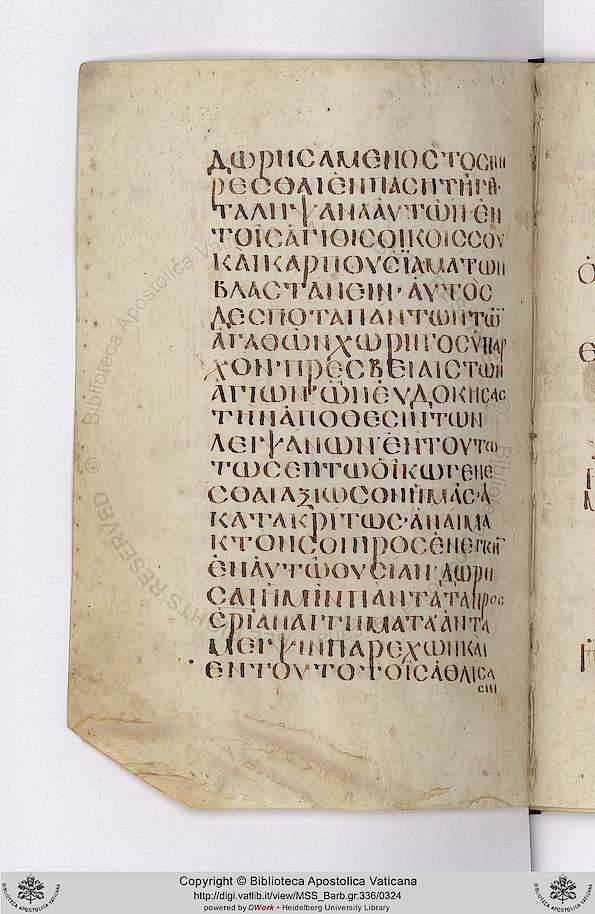 ΔΩΡΗϹΑΜΕΝΟϹΤΟϹΠΙ
ΡΕϹΘΑΙΕΝΠΑϹΗΤΗΓΗ·
ΤΑΛΗΨΑΝΑΑΥΤΩΝ·ΕΝ
ΤΟΙϹΑΓΙΟΙϹΟΙΚΟΙϹϹΟΥ
ΚΑΙΚΑΡΠΟΥϹΪΑΜΑΤΩΝ
ΒΛΑϹΤΑΝΕΙΝ·ΑΥΤΟϹ
ΔΕϹΠΟΤΑΠΑΝΤΩΝΤΩ̅
ΑΓΑΘΩΝΧΩΡΗΓΟϹΫΠΑΡ
ΧΟΝ·ΠΡΕϹΒΕΙΑΙϹΤΩΝ
ΑΓΙΩΝ·ΩΝΕΥΔΟΚΗϹΑϹ
ΤΗΝΑΠΟΘΕϹΙΝΤΩΝ
ΛΕΙΨΑΝΩΝ·ΕΝΤΟΥΤΩ
ΤΩϹΕΠΤΩΟΙΚΩΓΕΝΕ
ϹΘΑΙΑΞΙΩϹΟΝΗΜΑϹ·Α
ΚΑΤΑΚΡΙΤΩϹ·ΑΝΑΙΜΑ
ΚΤΟΝϹΟΙΠΡΟϹΕΝΕΓΚΙ̅
ΕΝΑΥΤΩΘΥϹΙΑΝ·ΔΩΡΗ
ϹΑΙΗΜΙΝΠΑΝΤΑΤΑΠΡΟϹ
ϹΡΙΑΝΑΙΤΗΜΑΤΑΑΝΤΑ
ΜΕΙΨΙΝΠΑΡΕΧΩΝΚΑΙ
ΕΝΤΟΥΤΟΤΟΙϹΑΘΛΙϹΑ
ϹΙΝ
© Biblioteca Apostolica Vaticana
Copyright © Biblioteca Apostolica Vaticana
http://digi.vatlib.it/view/MSS_Barb.gr.336/0324
powered by DWork • Heidelberg University Library